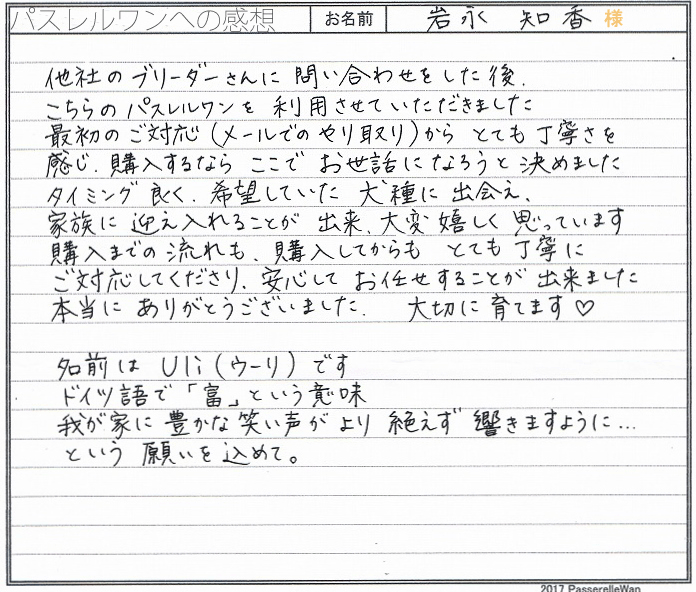 パスレルワンへの感想 お名前 岩永 知香 様
他社のブリーダーさんに 問い合わせをした後、
こちらの パスレルワンを 利用させていただきました
最初のご対応(メールでのやり取り)から とても丁寧さを
感じ、購入するなら ここで お世話になろうと 決めました
タイミング 良く、希望していた 犬種に 出会え、
家族に 迎え入れることが 出来、大変 嬉しく 思っています
購入までの 流れも、購入してからも とても 丁寧に
ご対応してくださり、安心して お任せすることが 出来ました
本当に ありがとうございました. 大切に 育てます♡
名前は Uli(ウーリ)です
ドイツ語で「富」という意味
我が家に 豊かな 笑い声が より 絶えず 響きますように…
という 願いを 込めて。
2017 PasserelleWan